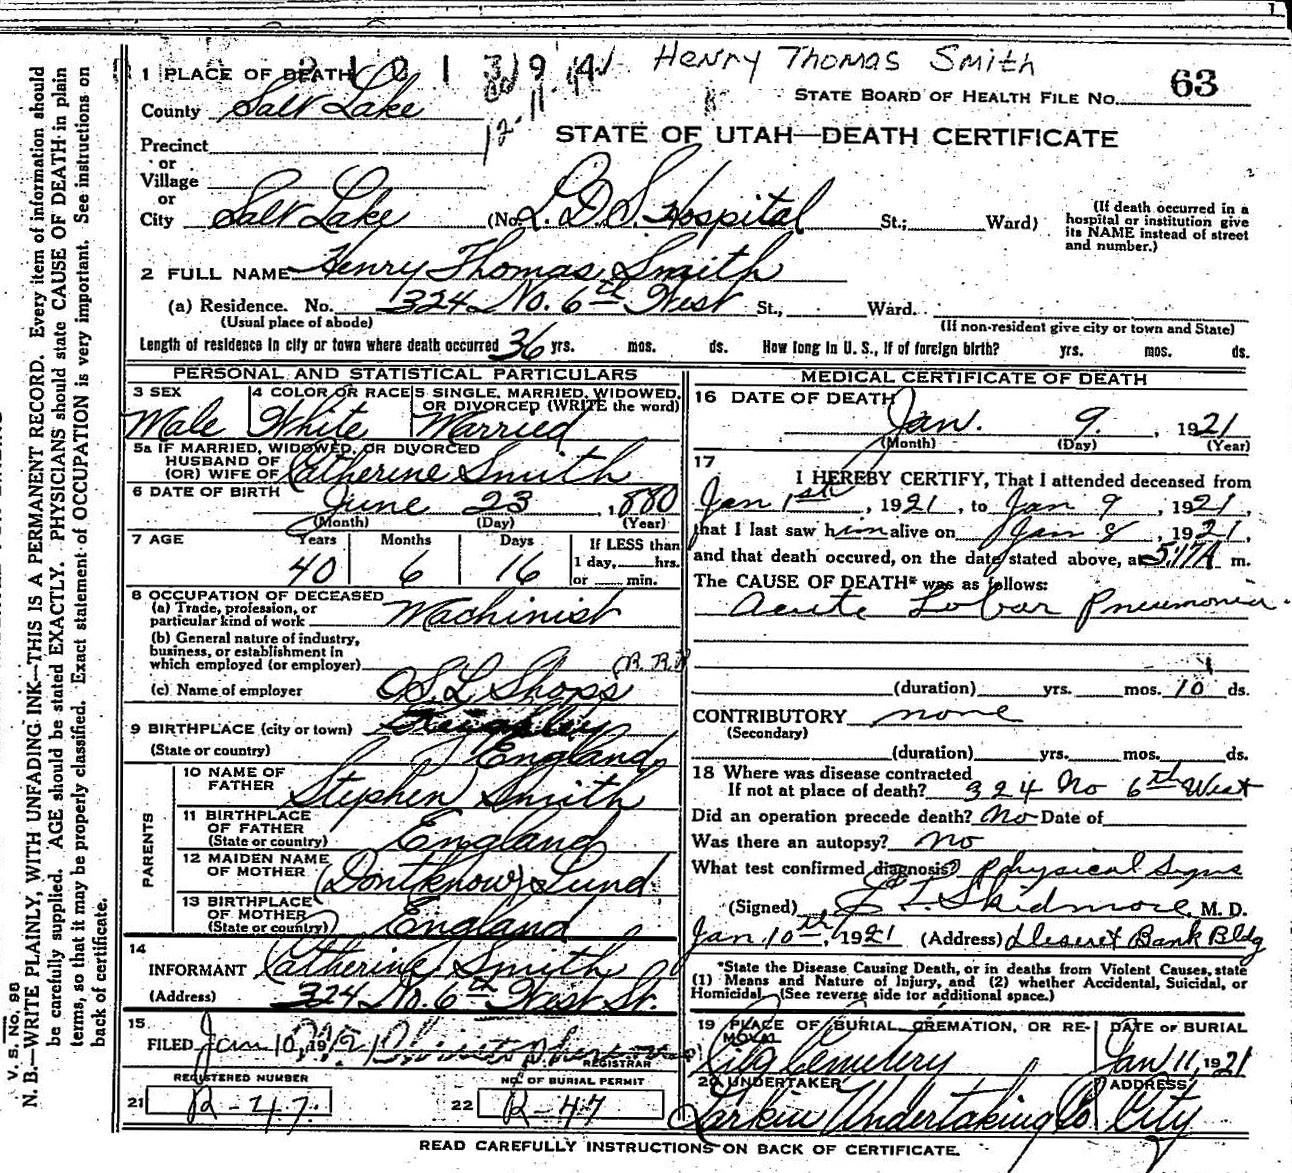 Henry Thomas Smith
1 PLACE OF DEATH 2101394
County Salt Lake
STATE BOARD OF HEALTH FILE NO. 63
STATE OF UTAH—DEATH CERTIFICATE
Precinct
or
Village
or
City Salt Lake (No. L.D.S. Hospital St.; Ward)
(If death occurred in a
hospital or institution give
its NAME instead of street
and number.)
2 FULL NAME Henry Thomas Smith
(a) Residence. No. 324 No. 6th West St., Ward.
(Usual place of abode)
(If non-resident give city or town and State)
Length of residence in city or town where death occurred 36 yrs. mos. ds. How long in U. S., if of foreign birth? yrs. mos. ds.
PERSONAL AND STATISTICAL PARTICULARS
3 SEX Male
4 COLOR OR RACE White
5 SINGLE, MARRIED, WIDOWED,
OR DIVORCED (WRITE the word)
Married
5a IF MARRIED, WIDOWED, OR DIVORCED
HUSBAND OF
(OR) WIFE OF Catherine Smith
6 DATE OF BIRTH June 23, 1880
(Month) (Day) (Year)
7 AGE Years Months Days If LESS than
1 day, hrs.
or min.
40 6 16
8 OCCUPATION OF DECEASED
(a) Trade, profession, or
particular kind of work Machinist
(b) General nature of industry,
business, or establishment in
which employed (or employer) (R.R.)
(c) Name of employer O.S.L Shops
9 BIRTHPLACE (city or town) Keighley
(State or country) England
PARENTS
10 NAME OF
FATHER Stephen Smith
11 BIRTHPLACE
OF FATHER
(State or country) England
12 MAIDEN NAME
OF MOTHER (Dont know) Lund
13 BIRTHPLACE
OF MOTHER
(State or country) England
14
INFORMANT Catherine Smith
(Address) 324 No. 6th West St.
15
FILED Jan 10, 1921
REGISTRAR
REGISTERED NUMBER
21 R-47.
NO. OF BURIAL PERMIT
22 R-47
MEDICAL CERTIFICATE OF DEATH
16 DATE OF DEATH
Jan. 9, 1921
(Month) (Day) (Year)
17
I HEREBY CERTIFY, That I attended deceased from
Jan 1st, 1921, to Jan 9, 1921,
that I last saw him alive on Jan 8, 1921,
and that death occured, on the date stated above, at 5:17A m.
The CAUSE OF DEATH* was as follows:
Acute Lobar Pneumonia.
(duration) yrs. mos. 10 ds.
CONTRIBUTORY none
(Secondary)
(duration) yrs. mos. ds.
18 Where was disease contracted
If not at place of death? 324 No 6th West
Did an operation precede death? No Date of
Was there an autopsy? no
What test confirmed diagnosis? Physical Signs
(Signed) Skidmore, M. D.
Jan 10th, 1921 (Address) Deseret Bank Bldg
*State the Disease Causing Death, or in deaths from Violent Causes, state
(1) Means and Nature of Injury, and (2) whether Accidental, Suicidal, or
Homicidal. (See reverse side for additional space.)
19 PLACE OF BURIAL, CREMATION, OR RE-
MOVAL City Cemetery
DATE OF BURIAL
Jan 11, 1921
20 UNDERTAKER
Larkin Undertaking Co
ADDRESS
City
READ CAREFULLY INSTRUCTIONS ON BACK OF CERTIFICATE.
V. S. No. 98
N. B.—WRITE PLAINLY, WITH UNFADING INK—THIS IS A PERMANENT RECORD. Every item of information should
be carefully supplied. AGE should be stated EXACTLY. PHYSICIANS should state CAUSE OF DEATH in plain
terms, so that it may be properly classified. Exact statement of OCCUPATION is very important. See instructions on
back of certificate.